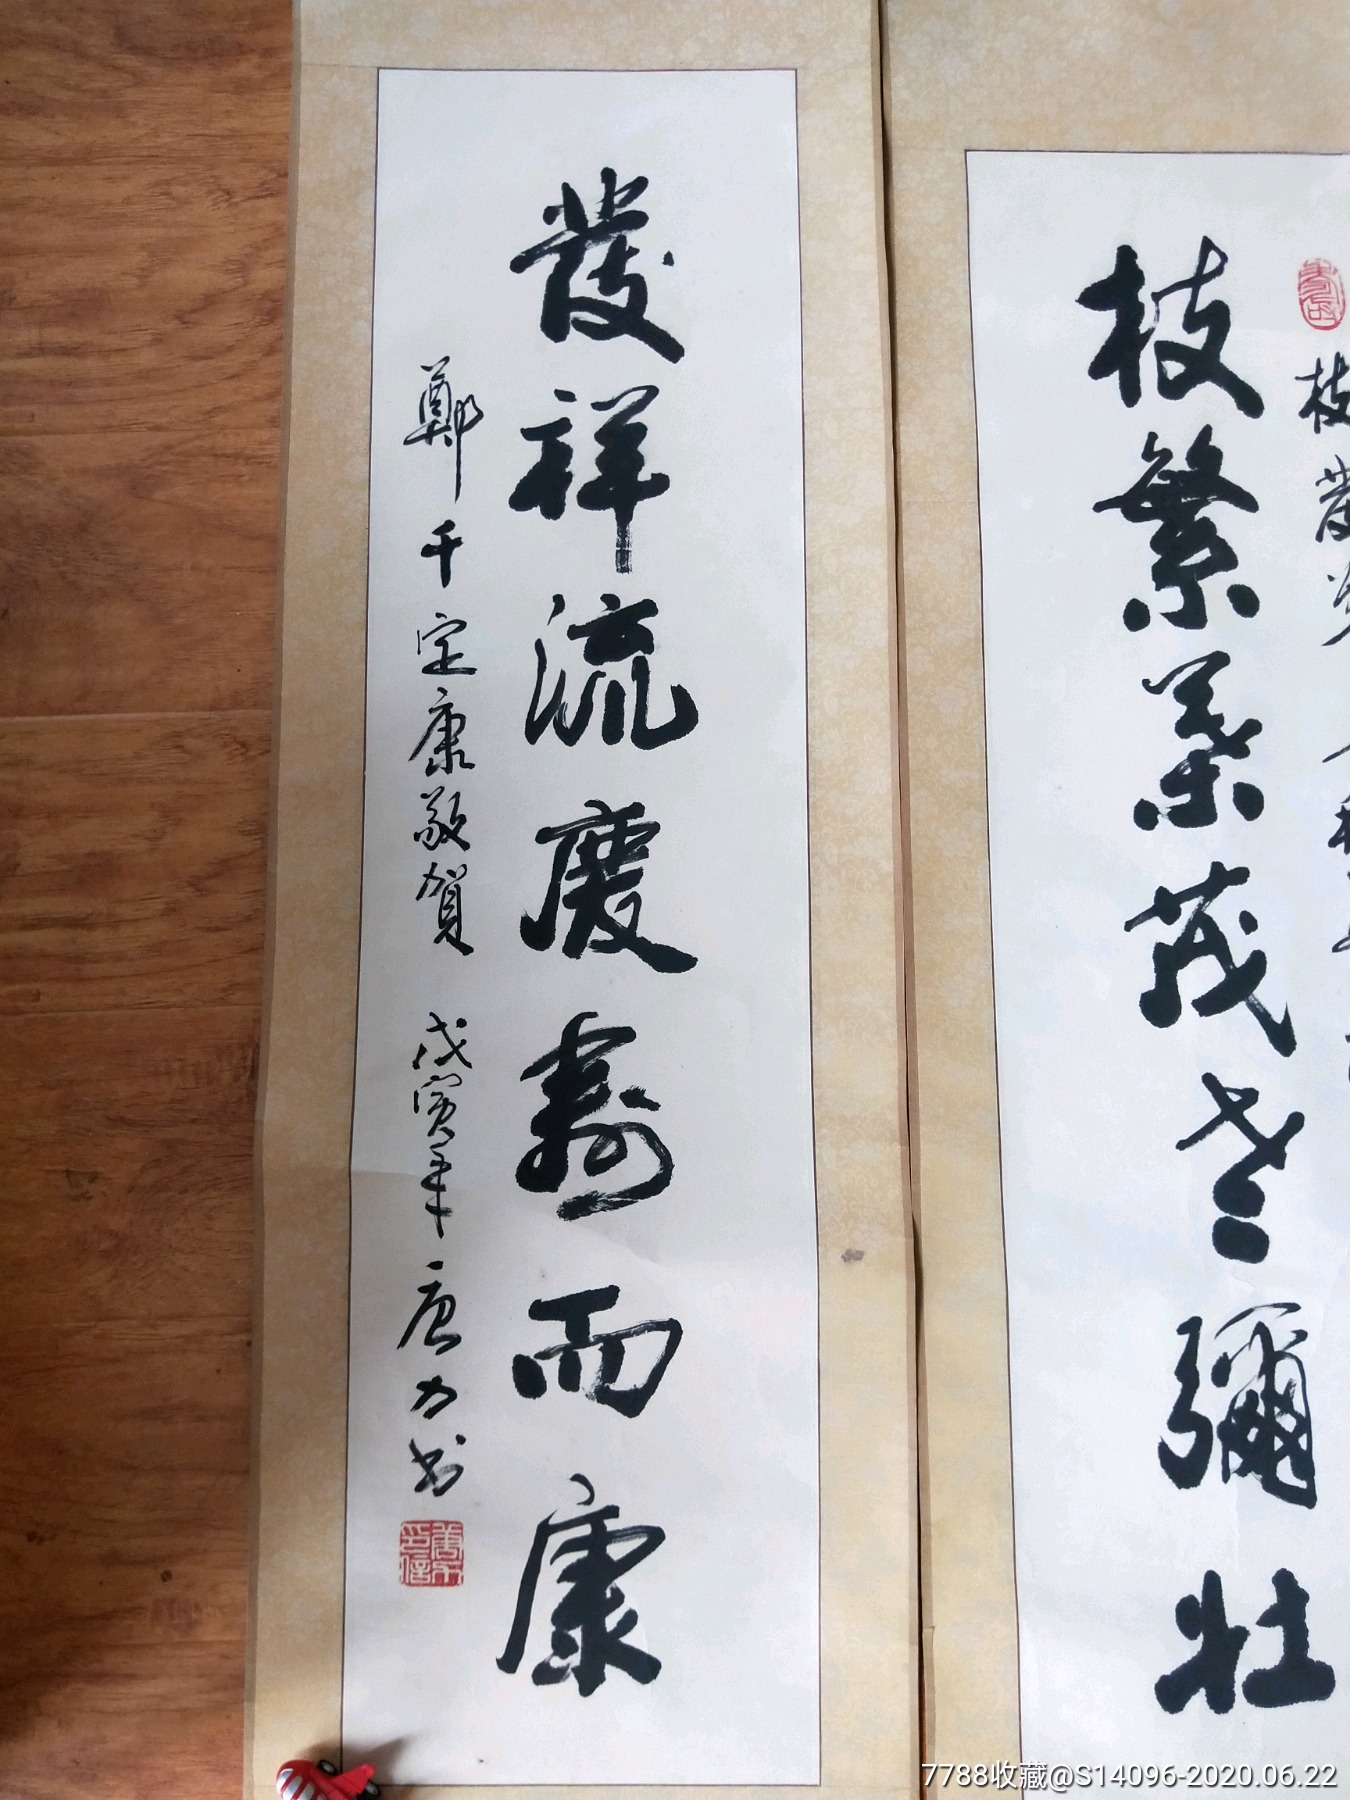 枝繁葉茂老彌壯
發祥流慶壽而康
鄭千定康敬賀 戊寅年 唐力书
7788收藏@S14096-2020.06.22